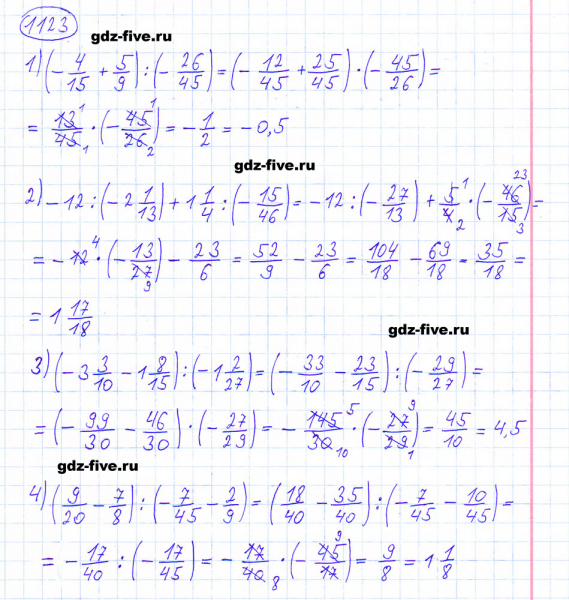 1123
gdz-five.ru
1) (- 4/15 + 5/9) : (- 26/45) = (- 12/45 + 25/45) · (- 45/26) =
= 13/45 · (- 45/26) = - 1/2 = -0,5
gdz-five.ru
2) -12 : (-2 1/13) + 1 1/4 : (- 15/46) = -12 : (- 27/13) + 5/4 · (- 46/15) =
= -12 · (- 13/27) - 23/6 = 52/9 - 23/6 = 104/18 - 69/18 = 35/18 =
= 1 17/18
gdz-five.ru
3) (-3 3/10 - 1 8/15) : (-1 2/27) = (- 33/10 - 23/15) : (- 29/27) =
= (- 99/30 - 46/30) · (- 27/29) = - 145/30 · (- 27/29) = 45/10 = 4,5
gdz-five.ru
4) (9/20 - 7/8) : (- 7/45 - 2/9) = (18/40 - 35/40) : (- 7/45 - 10/45) =
= - 17/40 : (- 17/45) = - 17/40 · (- 45/17) = 9/8 = 1 1/8